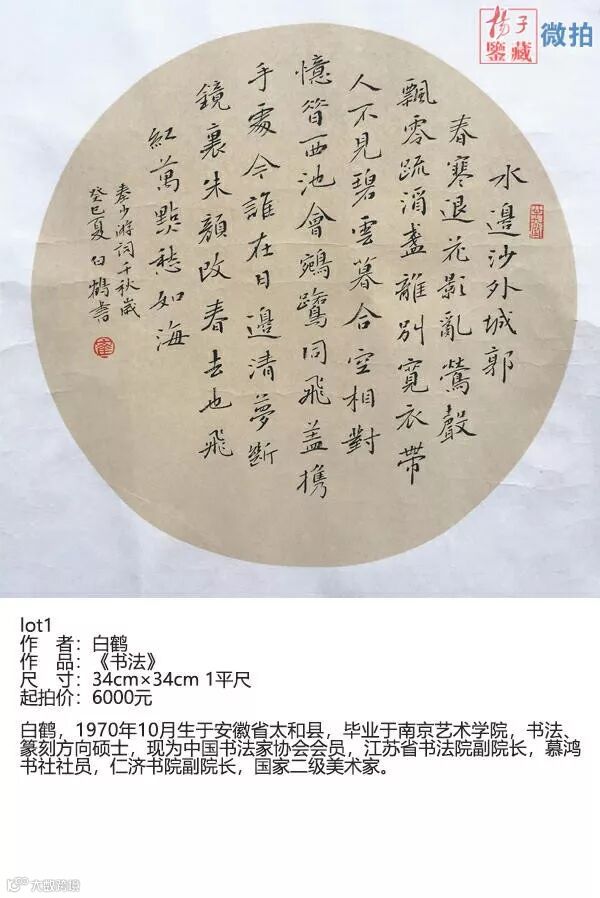 揚子
鑒藏
微拍
水邊沙外城郭
春寒退花影亂鶯聲
飄零疏酒盞離別寬衣帶
人不見碧雲暮合空相對
憶昔西池會鵷鷺同飛盖携
手處今誰在日邊清夢斷
鏡裏朱顏改春去也飛
紅萬點愁如海
秦少游詞千秋歲
癸巳夏白鶴書
lot1
作 者：白鹤
作 品：《书法》
尺 寸：34cm×34cm 1平尺
起拍价：6000元
白鹤，1970年10月生于安徽省太和县，毕业于南京艺术学院，书法、
篆刻方向硕士，现为中国书法家协会会员，江苏省书法院副院长，慕鸿
书社社员，仁济书院副院长，国家二级美术家。
大数跨境